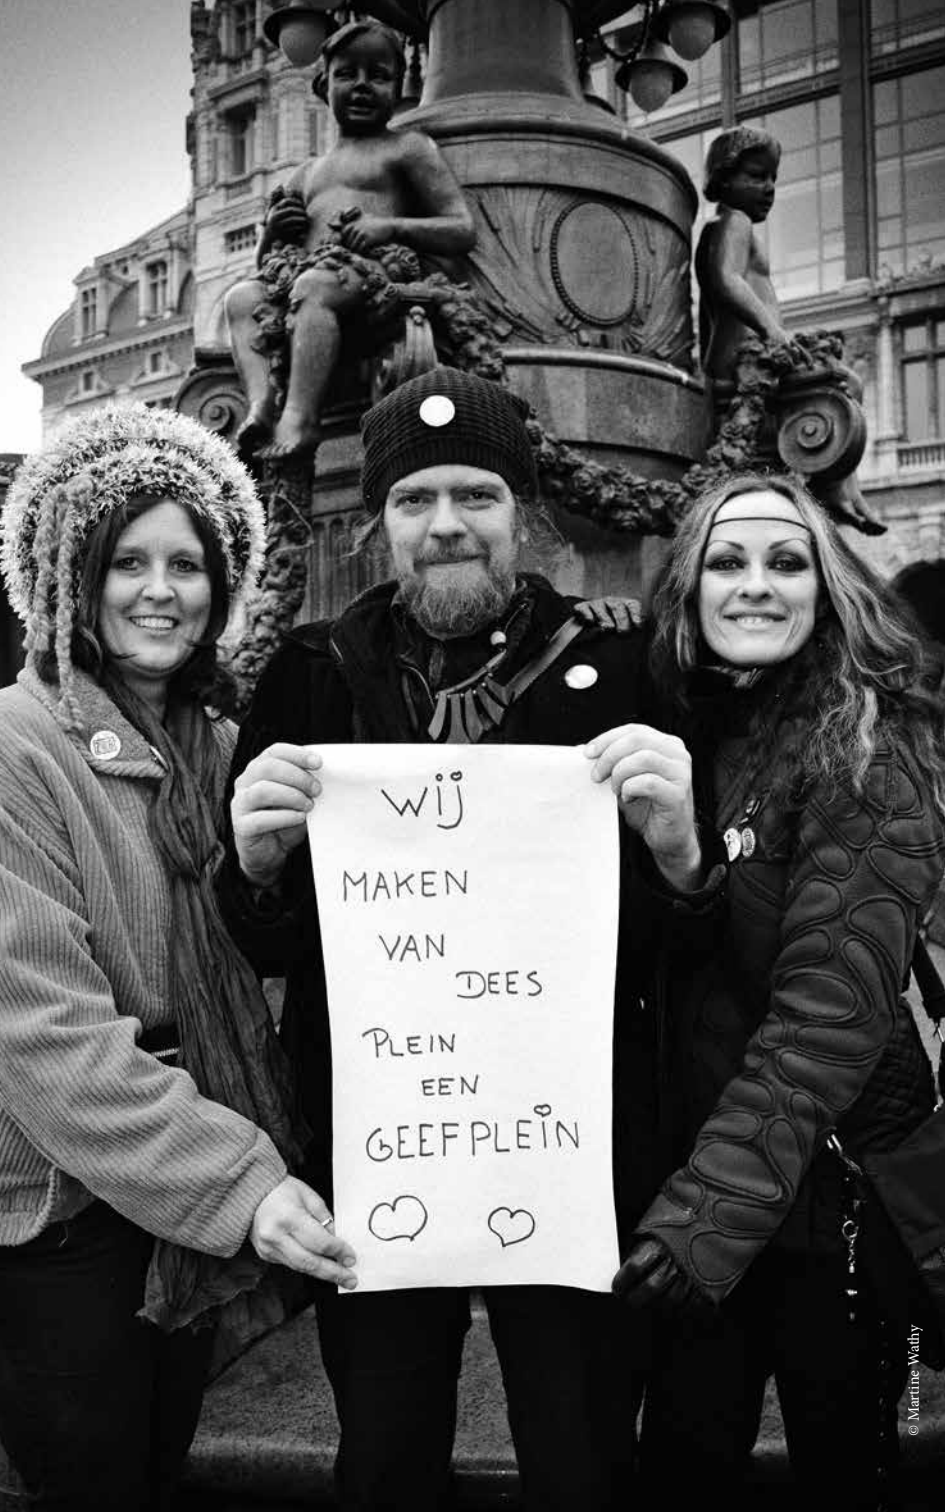 WIJ
MAKEN
VAN
DEES
PLEIN
EEN
GEEFPLEIN
© Martine Wathy